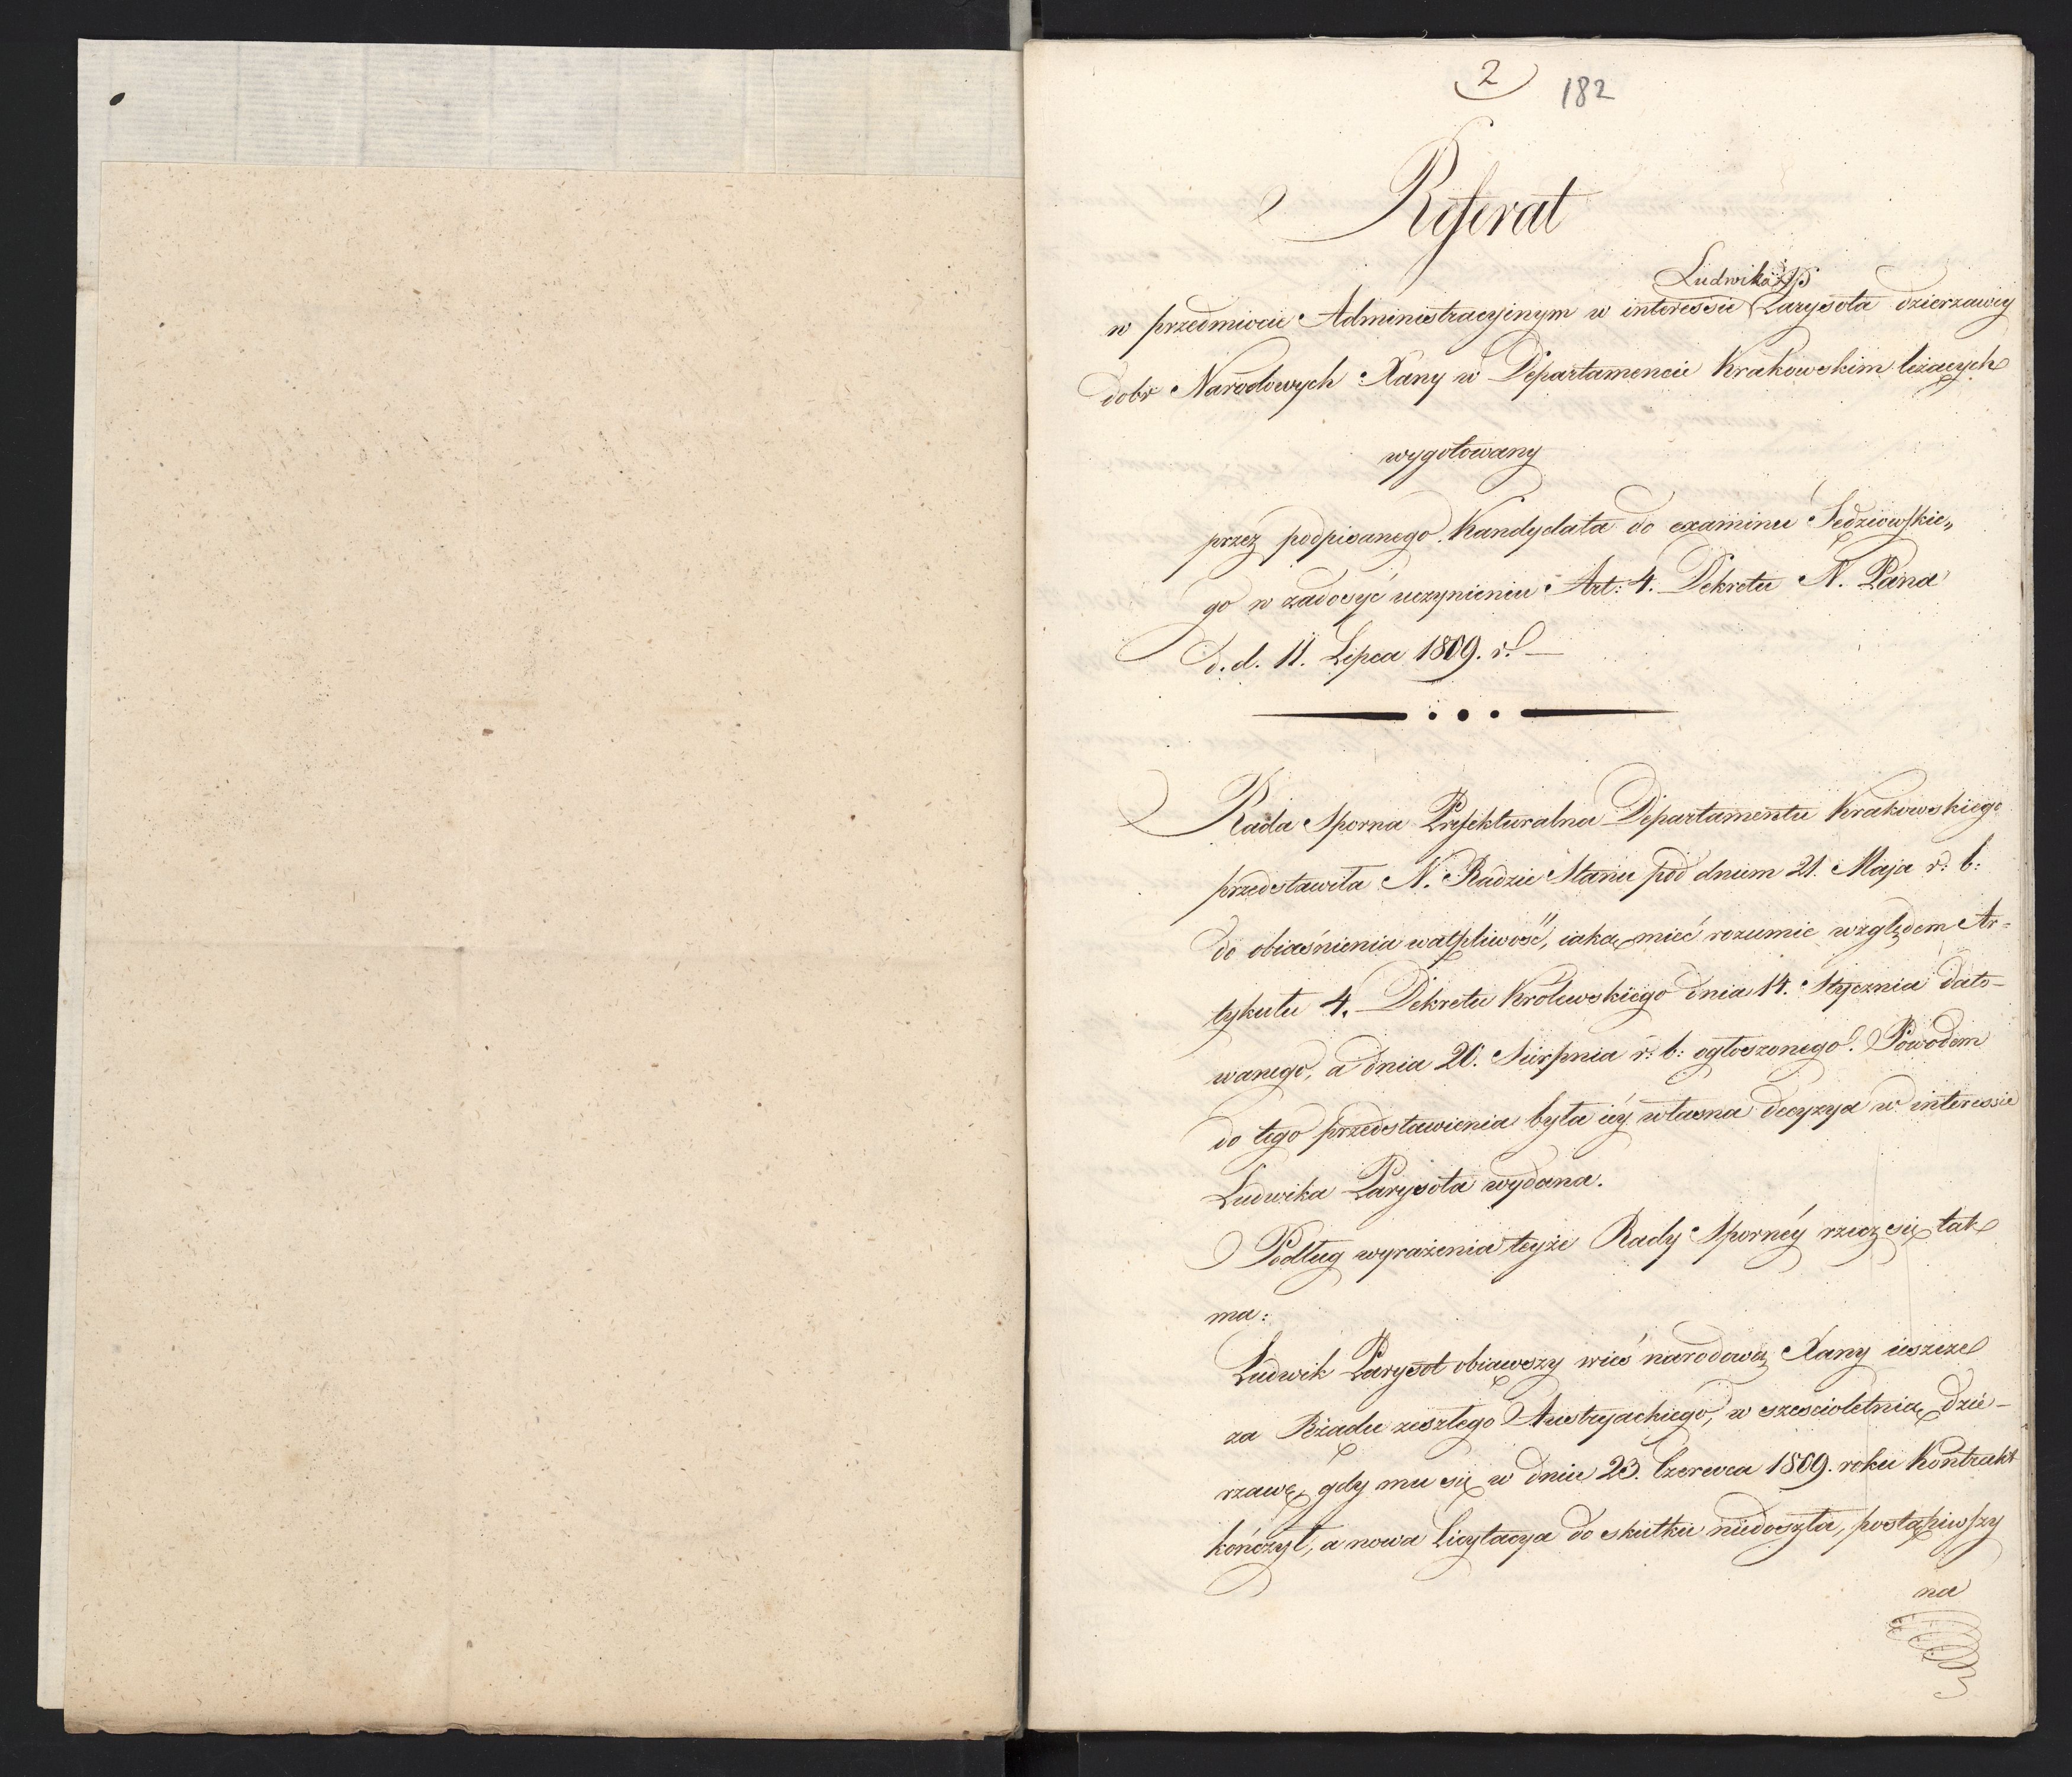 2
182
Referat
Ludwika
w przedmiocie Administracyinym w interessie Parysota dzierzawcy
dobr Narodowych Xany w Departamencie Krakowskim leżących
wygotowany
przez podpisanego Kandydata do examinu Sędziowskie„
go w zadosyć uczynieniu Art: 4. Dekretu N. Pana
d. d. 11. Lipca 1809. r. —
Rada Sporna Prefekturalna Departamentu Krakowskiego
przedstawiła N. Radzie Stanu pod dniem 21. Maja r: b:
do obiaśnienia watpliwość, iaką mieć rozumie względem Ar=
tykułu 4. Dekretu Królewskiego dnia 14. Stycznia dato-
wanego, a dnia 20. Sierpnia r: b: ogłoszonego. Powodem
do tego przedstawienia była iéy własna decyzya w interessie
Ludwika Parysota wydana.
Podług wyrażenia teyże Rady Spornéy rzecz się tak
ma:
Ludwik Parysot obiąwszy wieś narodową Xany ieszcze
za Rządu zeszłego Austryackiego, w sześcioletnią dzie-
rzawę, gdy mu się w dniu 23. Czerwca 1809. roku Kontrakt
kończył, a nowa Licytacya do skutku niedoszła, postąpiwszy
na